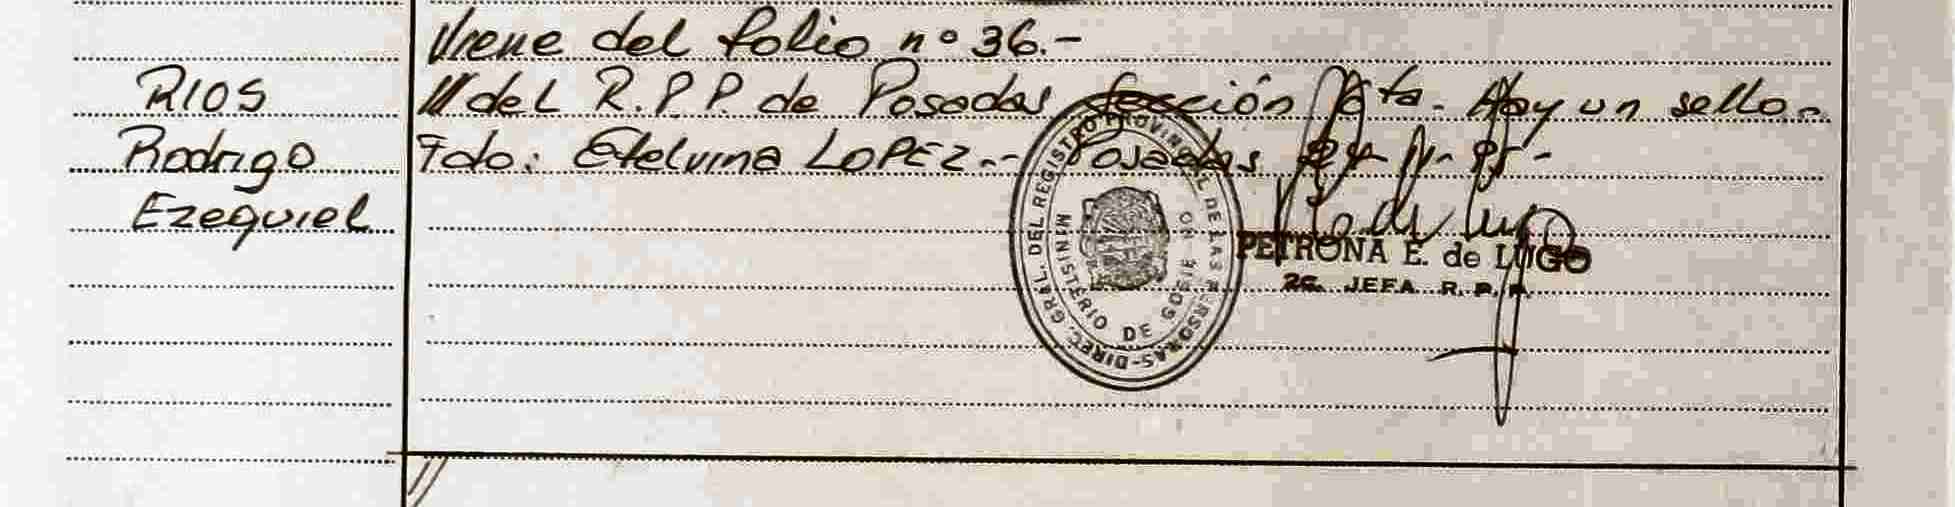 Viene del folio nº 36.-
RIOS
Rodrigo
Ezequiel
// del R.P.P. de Posadas Sección 4ta. Hay un sello.-
Fdo: Etelvina LOPEZ.-- Posadas
DIREC. GRAL. DEL REGISTRO PROVINCIAL DE LAS PERSONAS-
MINISTERIO DE GOBIERNO
PETRONA E. de LUGO
2a. JEFA R. P. P.
//